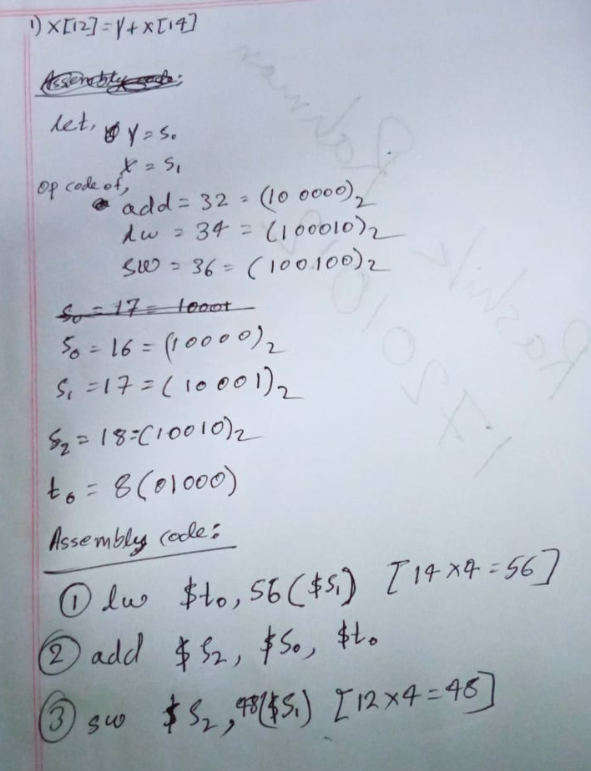 1) X[12] = Y + X[14]
Assembly code:
Let, Y = S₀
X = S₁
Op code of,
add = 32 = (100000)₂
lw = 34 = (100010)₂
sw = 36 = (100100)₂
S₀ = 17 = 10001
S₀ = 16 = (10000)₂
S₁ = 17 = (10001)₂
S₂ = 18 = (10010)₂
t₀ = 8 (01000)
Assembly code:
① lw $t₀, 56($S₁) [14×4 = 56]
② add $S₂, $S₀, $t₀
③ sw $S₂, 48($S₁) [12×4 = 48]